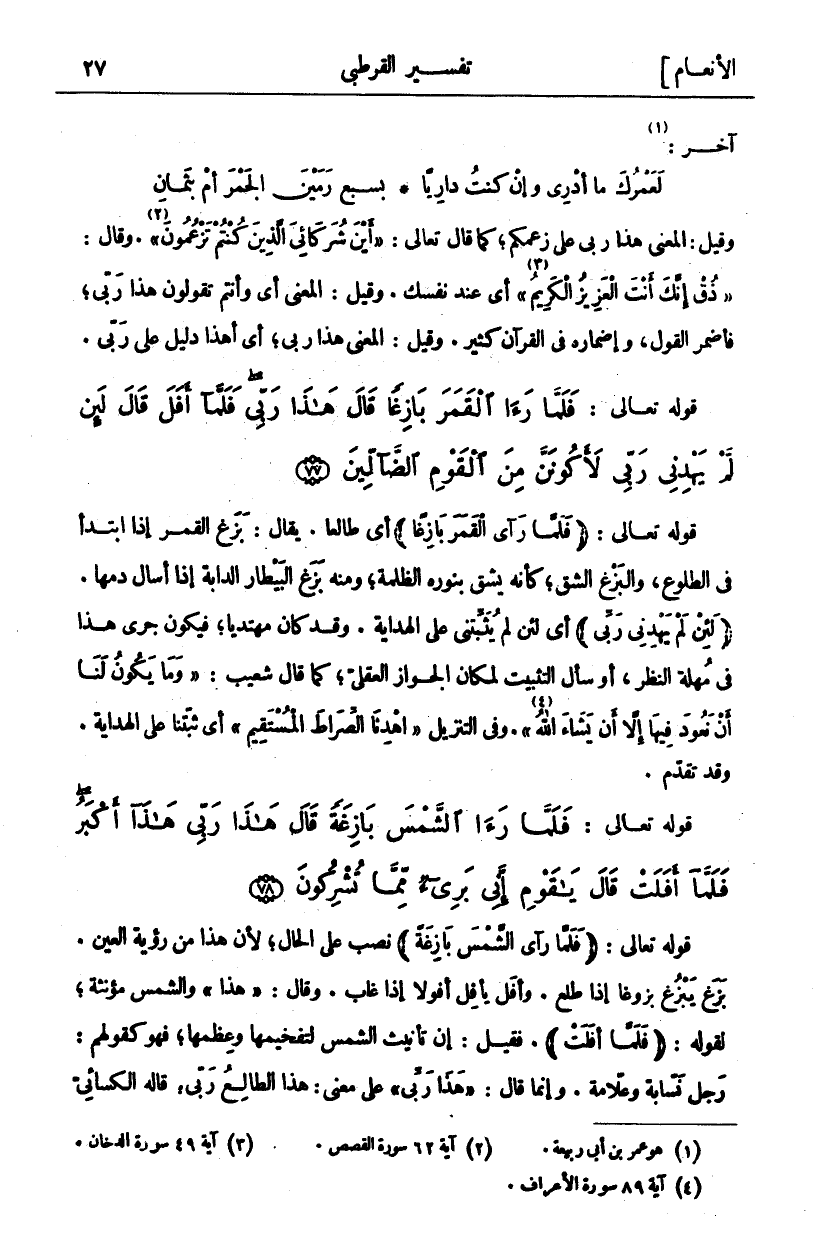 الأنعام] تفسير القرطبى ٢٧
آخر : (١)
لَعَمْرُكَ ما أدْرِى وإنْ كنتُ دارِيًا * بسبع رَمَيْنَ الجَمْرَ أمْ بثَمانِ
وقيل: المعنى هذا ربى على زعمكم؛ كما قال تعالى : «أَيْنَ شُرَكَائِىَ الَّذِينَ كُنْتُمْ تَزْعُمُونَ» (٢) . وقال :
« ذُقْ إِنَّكَ أَنْتَ الْعَزِيزُ الْكَرِيمُ» (٣) أى عند نفسك . وقيل : المعنى أى وأنتم تقولون هذا رَبّى؛
فأضمر القول، وإضماره فى القرآن كثير . وقيل : المعنى هذا ربى؛ أى أهذا دليل على رَبّى .
قوله تعالى : فَلَمَّا رَءَا ٱلْقَمَرَ بَازِغًا قَالَ هَـٰذَا رَبِّى ۖ فَلَمَّآ أَفَلَ قَالَ لَئِن
لَّمْ يَهْدِنِى رَبِّى لَأَكُونَنَّ مِنَ ٱلْقَوْمِ ٱلضَّآلِّينَ ٧٧
قوله تعالى : ﴿ فَلَمَّا رَأَى الْقَمَرَ بَازِغًا ﴾ أى طالعا . يقال : بَزَغ القمر إذا ابتدأ
فى الطلوع، والبَزْغ الشق؛ كأنه يشق بنوره الظلمة؛ ومنه بَزَغ البَيْطار الدابة إذا أسال دمها .
﴿ لَئِنْ لَمْ يَهْدِنِى رَبِّى ﴾ أى لئن لم يُثَبِّتنى على الهداية . وقد كان مهتديا؛ فيكون جرى هذا
فى مُهلة النظر، أو سأل التثبيت لمكان الجواز العقلىّ؛ كما قال شعيب : « وَمَا يَكُونُ لَنَا
أَنْ نَعُودَ فِيهَا إِلَّا أَن يَشَاءَ اللهُ» (٤) . وفى التنزيل « اهْدِنَا الصِّرَاطَ الْمُسْتَقِيمَ » أى ثبّتنا على الهداية .
وقد تقدّم .
قوله تعالى : فَلَمَّا رَءَا ٱلشَّمْسَ بَازِغَةً قَالَ هَـٰذَا رَبِّى هَـٰذَآ أَكْبَرُ ۖ
فَلَمَّآ أَفَلَتْ قَالَ يَـٰقَوْمِ إِنِّى بَرِىٓءٌ مِّمَّا تُشْرِكُونَ ٧٨
قوله تعالى : ﴿ فَلَمَّا رَأَى الشَّمْسَ بَازِغَةً ﴾ نصب على الحال؛ لأن هذا من رؤية العين .
بَزَغ يَبْزُغ بزوغا إذا طلع . وأفَل يأفِل أفولا إذا غاب . وقال : « هذا » والشمس مؤنثة؛
لقوله : ﴿ فَلَمَّا أَفَلَتْ ﴾ . فقيل : إن تأنيث الشمس لتفخيمها وعظمها؛ فهو كقولهم :
رَجل نَسّابة وعلّامة . وإنما قال : «هَذَا رَبِّى» على معنى : هذا الطالعُ رَبّى؛ قاله الكسائىّ
(١) هو عمر بن أبى ربيعة . (٢) آية ٦٢ سورة القصص . (٣) آية ٤٩ سورة الدخان .
(٤) آية ٨٩ سورة الأعراف .